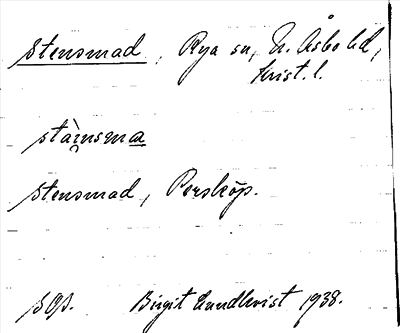 Stensmad, Rya sn, N. Åsbo hd,
Krist. l.
stàinsma
Stensmad, Perstorp.
Birgit Lundkvist 1938.